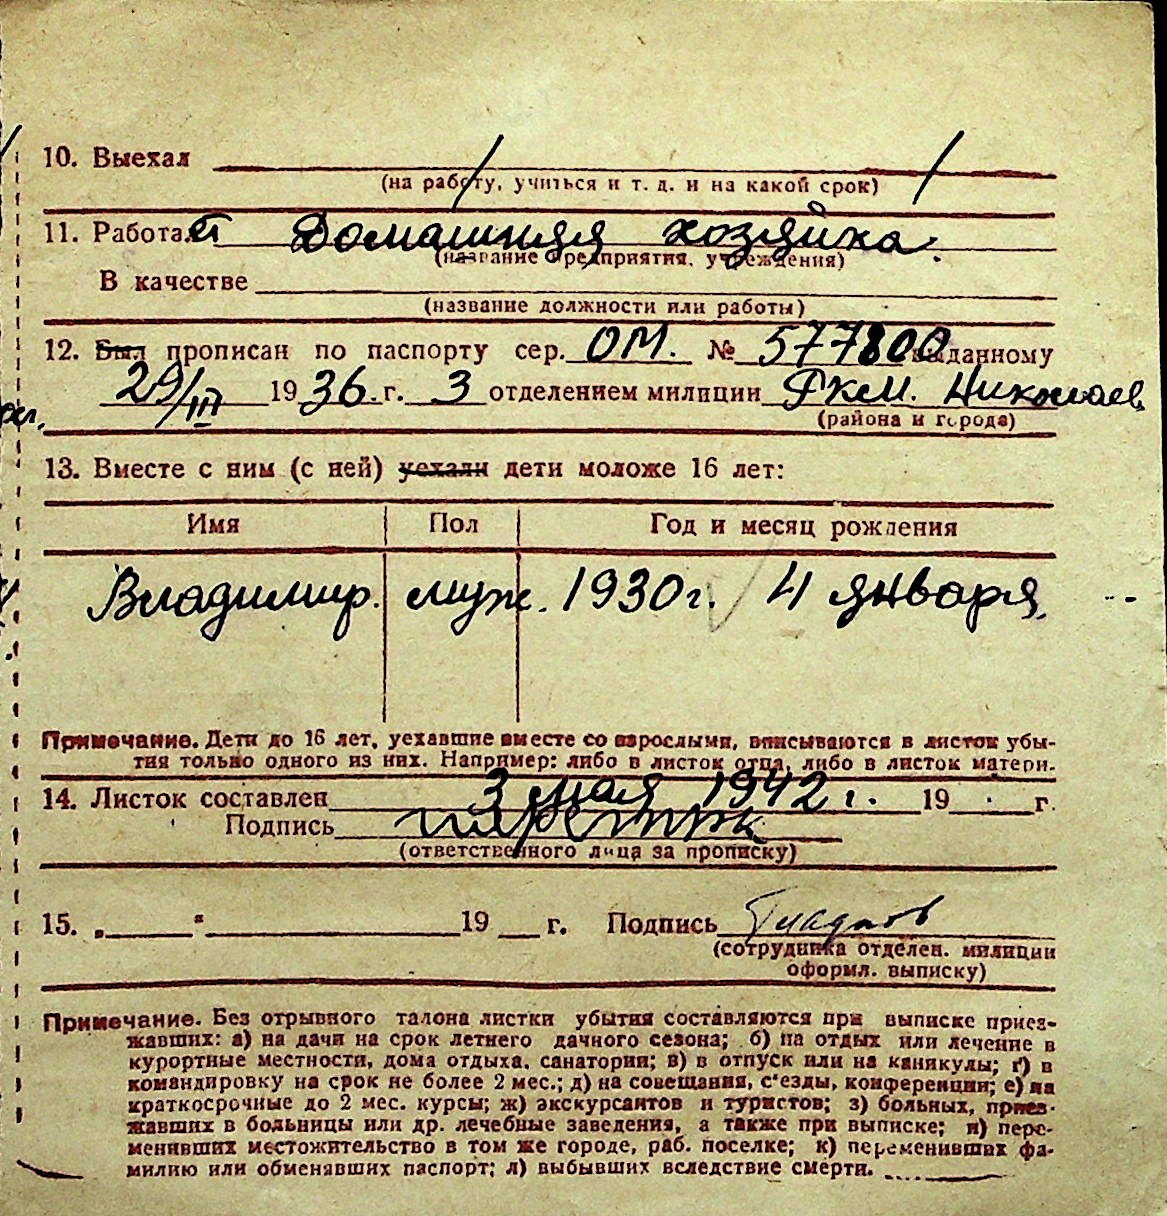 10. Выехал / /
(на работу, учиться и т. д. и на какой срок)
11. Работает Домашняя хозяйка.
(название предприятия, учреждения)
В качестве
(название должности или работы)
12. Был прописан по паспорту сер. ОМ. № 577800 выданному
29/III 1936 г. 3 отделением милиции РКМ. Николаев
(района и города)
13. Вместе с ним (с ней) уехали дети моложе 16 лет:
Имя Пол Год и месяц рождения
Владимир. муж. 1930 г. 4 января.
Примечание. Дети до 16 лет, уехавшие вместе со взрослыми, вписываются в листок убы-
тия только одного из них. Например: либо в листок отца, либо в листок матери.
14. Листок составлен 3 мая 1942 г. 19 г.
Подпись
(ответственного лица за прописку)
15. „ " 19 г. Подпись
(сотрудника отделен. милиции
оформл. выписку)
Примечание. Без отрывного талона листки убытия составляются при выписке приез-
жавших: а) на дачи на срок летнего дачного сезона; б) на отдых или лечение в
курортные местности, дома отдыха, санатории; в) в отпуск или на каникулы; г) в
командировку на срок не более 2 мес.; д) на совещания, с'езды, конференции; е) на
краткосрочные до 2 мес. курсы; ж) экскурсантов и туристов; з) больных, приез-
жавших в больницы или др. лечебные заведения, а также при выписке; и) пере-
менивших местожительство в том же городе, раб. поселке; к) переменивших фа-
милию или обменявших паспорт; л) выбывших вследствие смерти.